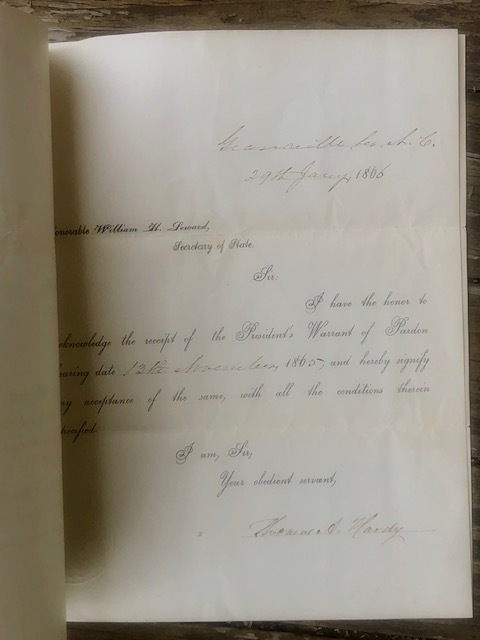 Granville Co. N. C.
29th Jany, 1866
onorable William H. Seward,
Secretary of State.
Sir:
I have the honor to
cknowledge the receipt of the President's Warrant of Pardon
earing date 13th November, 1865, and hereby signify
y acceptance of the same, with all the conditions therein
pecified.
I am, Sir,
Your obedient servant,
Thomas A. Hardy